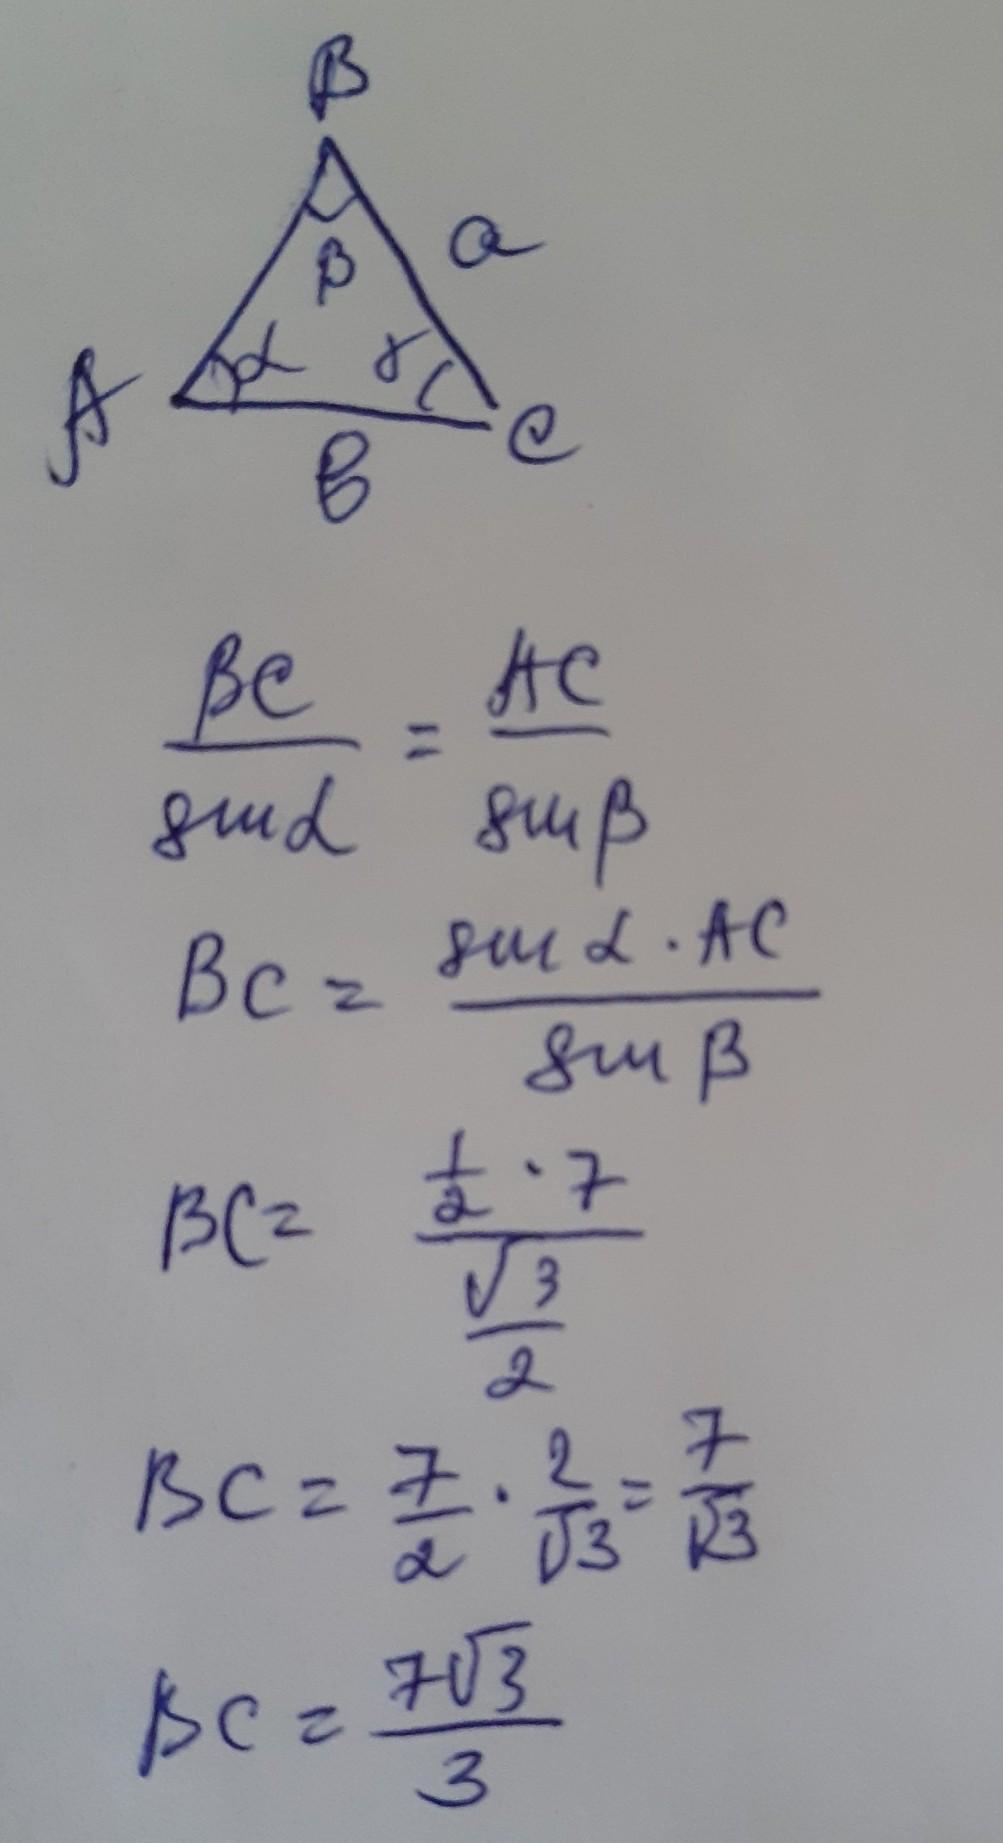 B
a
β
α γ
A C
в
BC/sin α = AC/sin β
BC = sin α · AC/sin β
BC = 1/2 · 7/√3/2
BC = 7/2 · 2/√3 = 7/√3
BC = 7√3/3